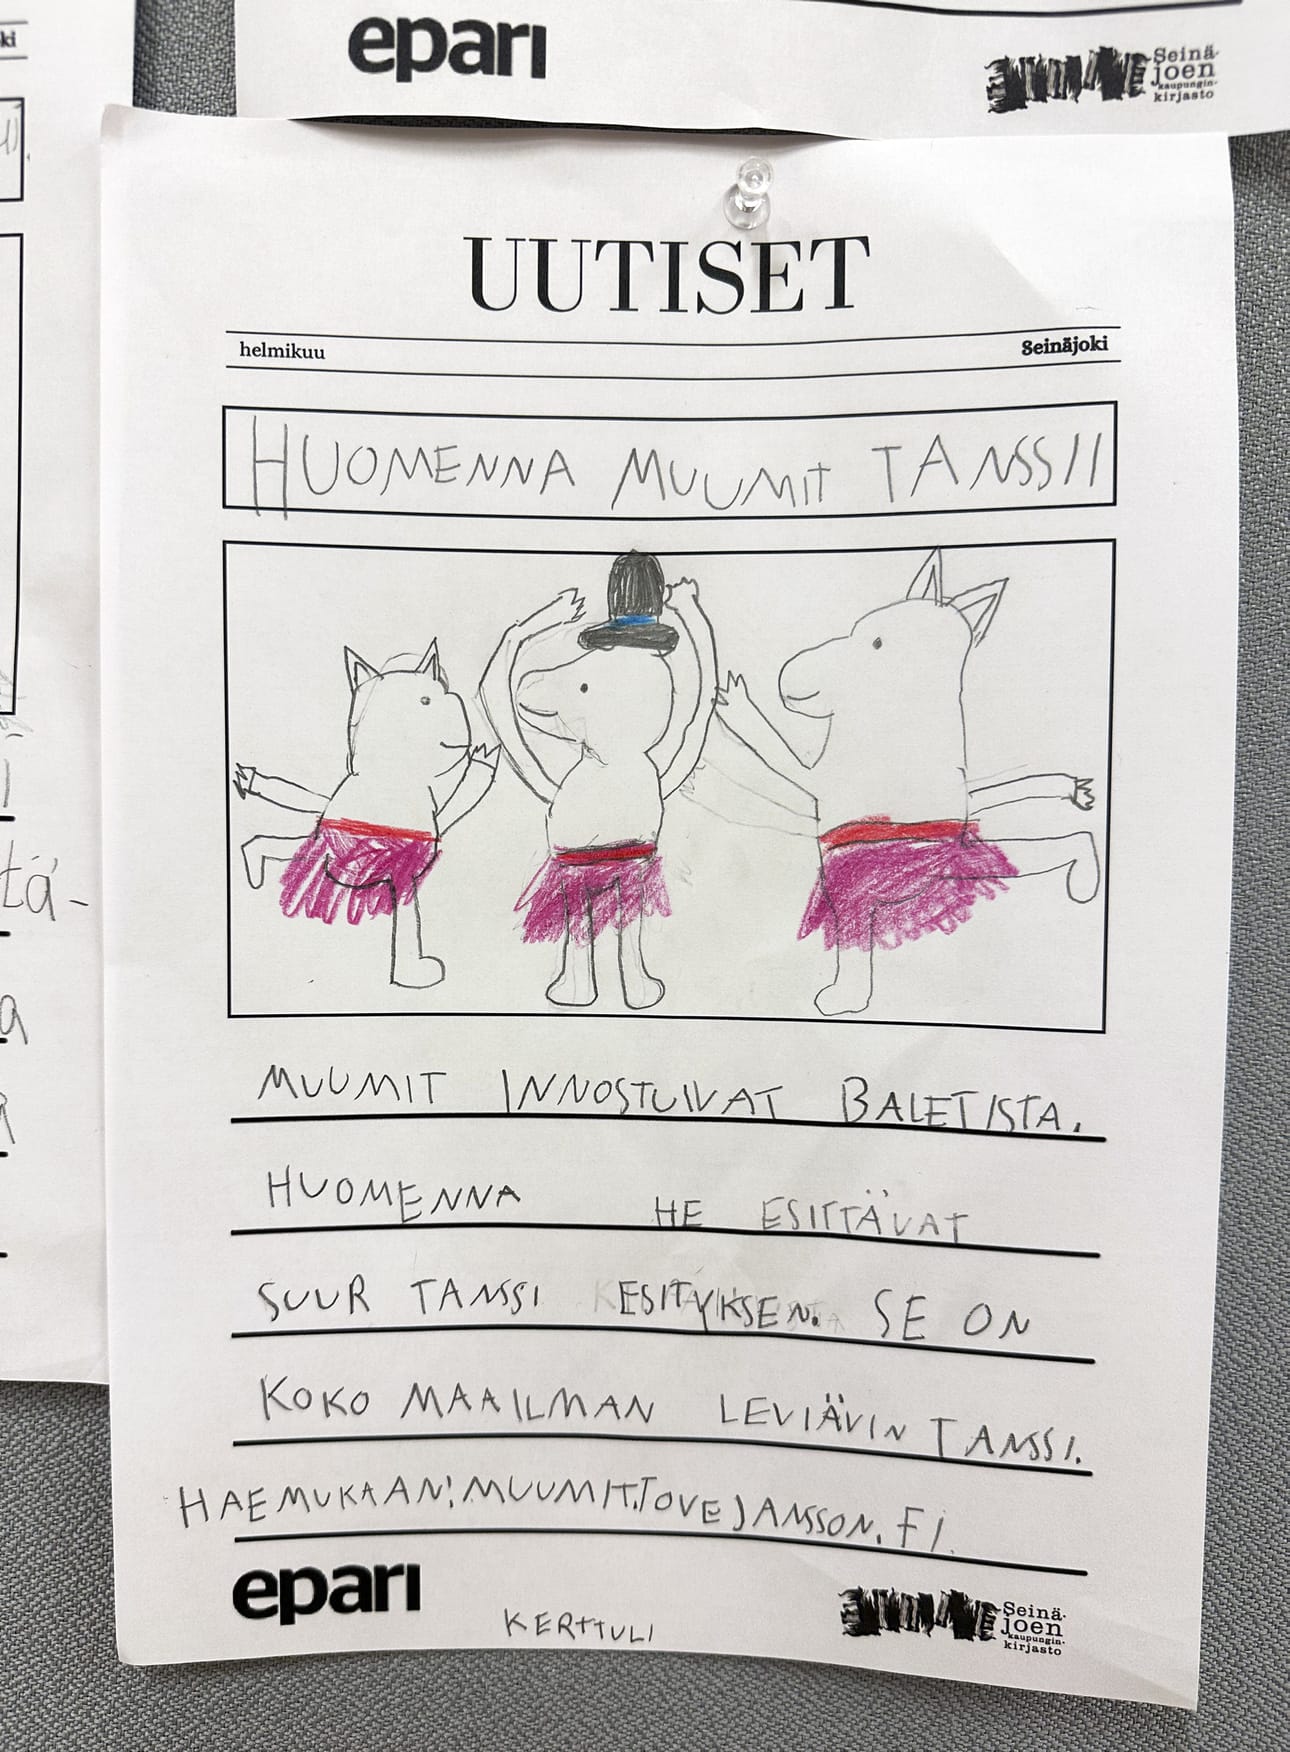 ki
epari
Seinä-
joen
kaupungin-
kirjasto
UUTISET
helmikuu Seinäjoki
HUOMENNA MUUMIT TANSSII
MUUMIT INNOSTUIVAT BALETISTA.
HUOMENNA HE ESITTÄVAT
SUUR TANSSI ESITYKSEN. SE ON
KOKO MAAILMAN LEVIÄVIN TANSSI.
HAE MUKAAN! MUUMIT.TOVEJANSSON.FI.
epari
KERTTULI
Seinä-
joen
kaupungin-
kirjasto
tä-
a